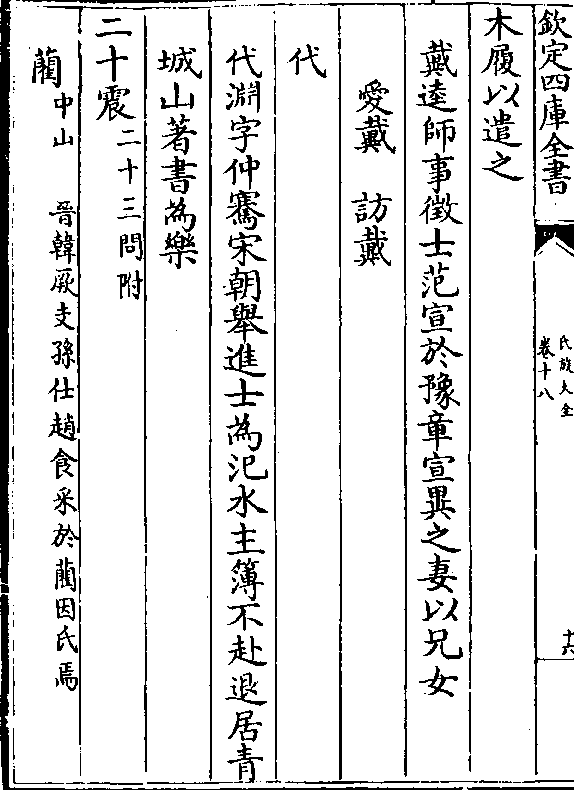 欽定四庫全書
氏族大全
卷十八
十六
木履以遣之
戴逵師事徵士范宣於豫章宣異之妻以兄女
愛戴　訪戴
代
代淵字仲騫宋朝舉進士為汜水主簿不赴退居青
城山著書為樂
二十震二十三問附
藺中山　晉韓厥支孫仕趙食采於藺因氏焉